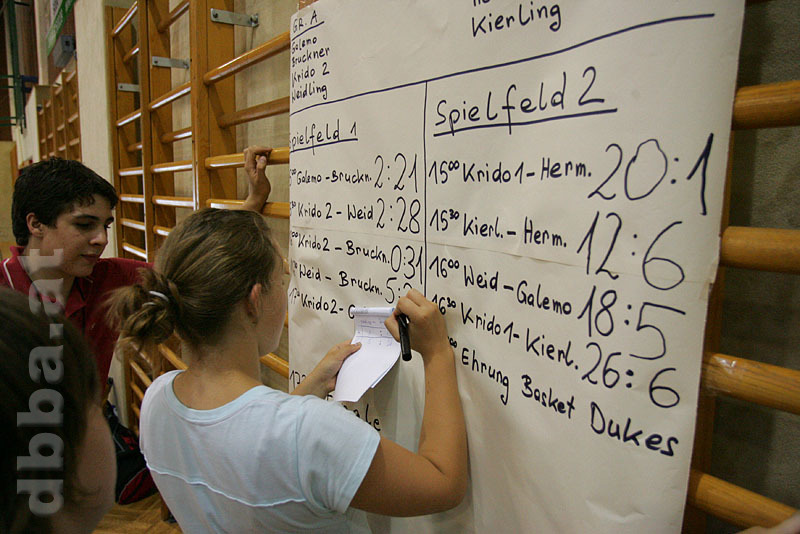 GR. A
Galemo
Bruckner
Krido 2
Weidling
Kierling
Spielfeld 1
Galemo - Bruckn. 2:21
Krido 2 - Weid 2:28
Krido 2 - Bruckn. 0:31
Weid - Bruckn. 5:
Krido 2 -
Spielfeld 2
15⁰⁰ Krido 1 - Herm. 20:1
15³⁰ Kierl. - Herm. 12:6
16⁰⁰ Weid - Galemo 18:5
16³⁰ Krido 1 - Kierl. 26:6
Ehrung Basket Dukes
dbba.at